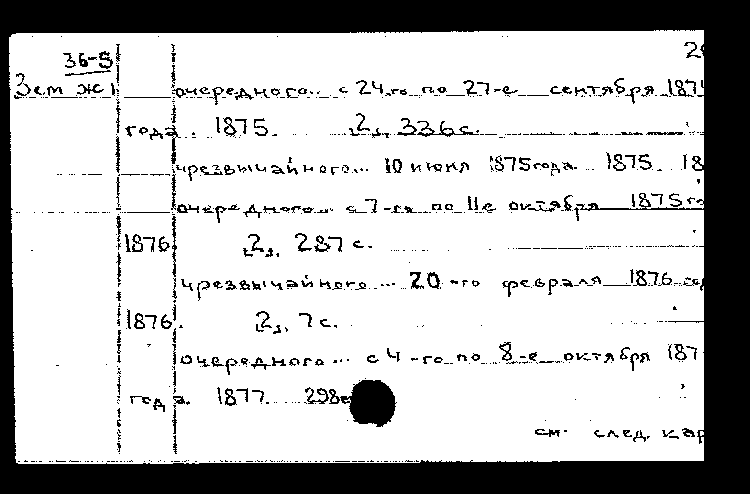 36-5
Зем Ж 1 очередного... с 24-го по 27-е сентября 187
года. 1875. 2, 336 с.
чрезвычайного... 10 июня 1875 года. 1875. 18
очередного... с 7-го по 11е октября 1875 го
1876. 2, 287 с.
чрезвычайного... 20-го февраля 1876 го
1876. 2, 7 с.
очередного... с 4-го по 8-е октября 187
года. 1877. 298
см. след. кар